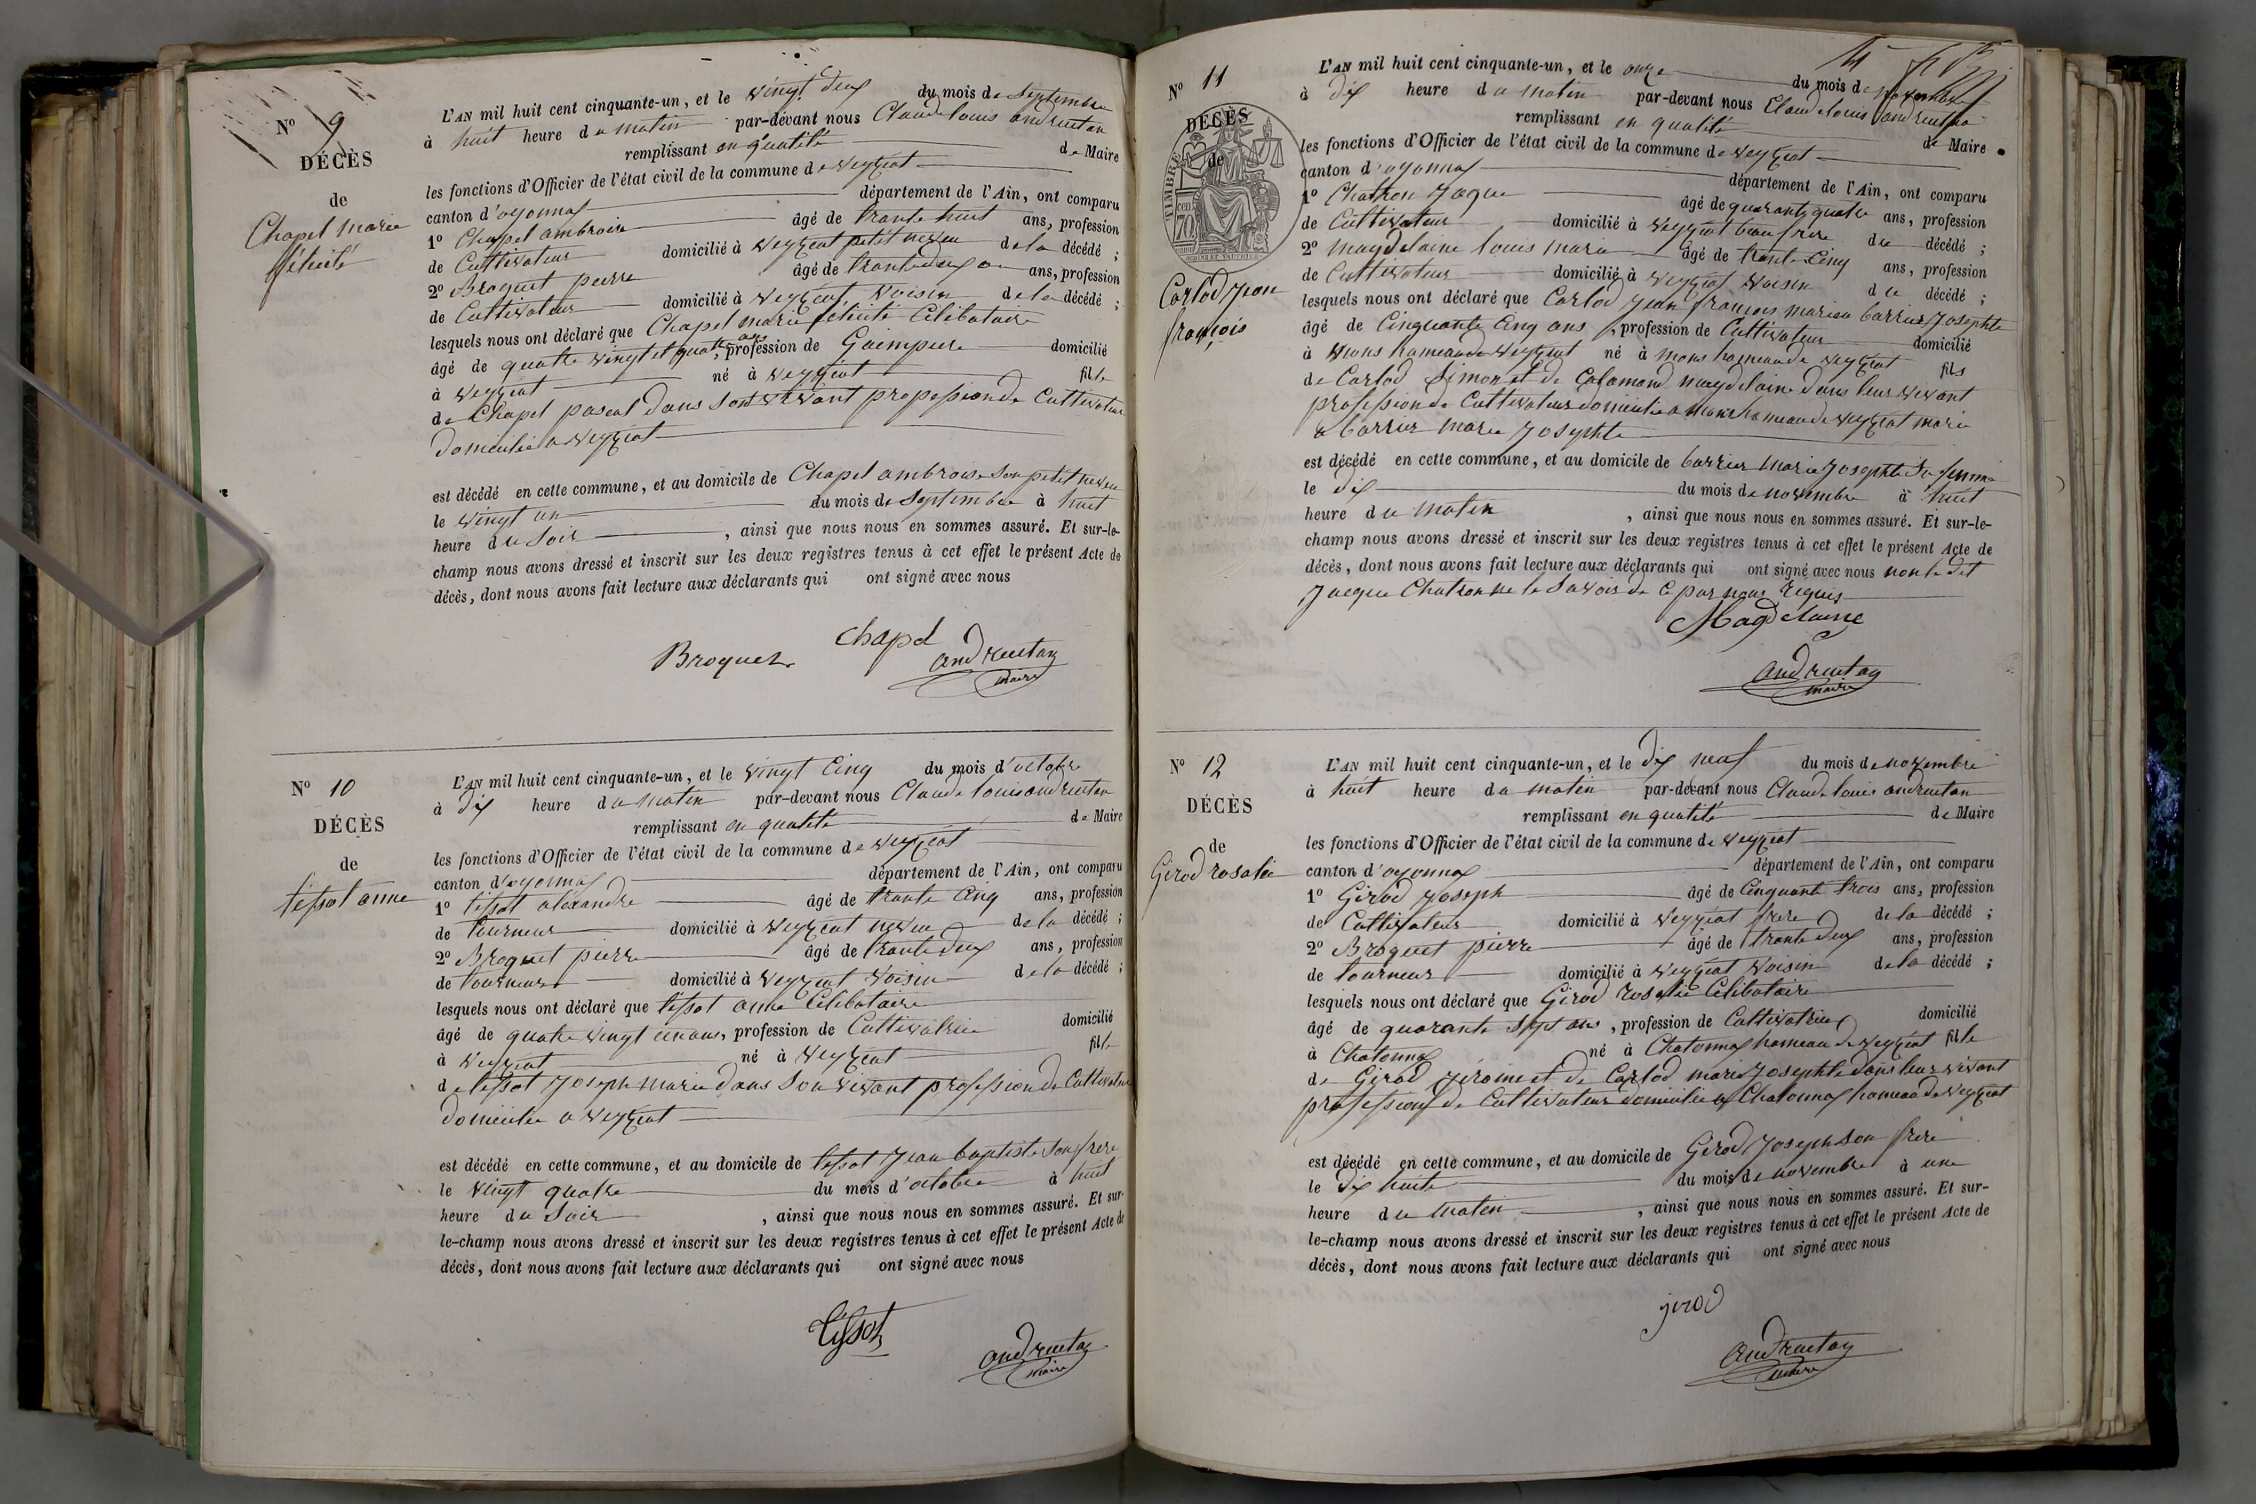 N° 9
DÉCÈS
de
Chapel marie
félicité
L'AN mil huit cent cinquante-un, et le vingt deux du mois de Septembre
à huit heure du matin par-devant nous Claude louis andreutan
remplissant en qualité de Maire
les fonctions d'Officier de l'état civil de la commune de veyziat
canton d'oyonnax département de l'Ain, ont comparu
1° Chappel ambroise âgé de trante huit ans, profession
de Cultivateur domicilié à veyziat petit neveu de la décédé ;
2° Broquet pierre âgé de trante deux ans, profession
de Cultivateur domicilié à veyziat, voisin de la décédé ;
lesquels nous ont déclaré que Chapel marie félicité Célibataire
âgé de quatre vingt et quatre ans, profession de Guimpiere domicilié
à veyziat né à veyziat fille
de Chapel pascal dans Son vivant profession de Cultivateur
domicilié a veyziat
est décédé en cette commune, et au domicile de Chapel ambroise Son petit neveu
le vingt un du mois de Septembre à huit
heure du Soir, ainsi que nous nous en sommes assuré. Et sur-le-
champ nous avons dressé et inscrit sur les deux registres tenus à cet effet le présent Acte de
décès, dont nous avons fait lecture aux déclarants qui ont signé avec nous
Broquet Chapel andreutan
maire
N° 10
DÉCÈS
de
tissot anne
L'AN mil huit cent cinquante-un, et le vingt Cinq du mois d'octobre
à dix heure du matin par-devant nous Claude louis andreutan
remplissant en qualité de Maire
les fonctions d'Officier de l'état civil de la commune de veyziat
canton d'oyonnax département de l'Ain, ont comparu
1° tissot aléxandre âgé de trante Cinq ans, profession
de tourneur domicilié à veyziat neveu de la décédé ;
2° Broquet pierre âgé de trante deux ans, profession
de tourneur domicilié à veyziat, voisin de la décédé ;
lesquels nous ont déclaré que tissot anne Célibataire
âgé de quatre vingt un ans, profession de Cultivatrice domicilié
à veyziat né à veyziat fille
de tissot Joseph marie dans Son vivant profession de Cultivateur
domicilié a veyziat
est décédé en cette commune, et au domicile de tissot Jean baptiste Son frere
le vingt quatre du mois d'octobre à huit
heure du Soir, ainsi que nous nous en sommes assuré. Et sur-
le-champ nous avons dressé et inscrit sur les deux registres tenus à cet effet le présent Acte de
décès, dont nous avons fait lecture aux déclarants qui ont signé avec nous
Tissot
andreutan
maire
N° 11
DÉCÈS
de
TIMBRE
cen
70
Carlod Jean
françois
L'AN mil huit cent cinquante-un, et le onze du mois de novembre
à dix heure du matin par-devant nous Claude louis andreutan
remplissant en qualité de Maire
les fonctions d'Officier de l'état civil de la commune de veyziat
canton d'oyonnax département de l'Ain, ont comparu
1° Chatron Jaque âgé de quarante quatre ans, profession
de Cultivateur domicilié à veyziat beau frere du décédé ;
2° magdelaine louis marie âgé de trante Cinq ans, profession
de Cultivateur domicilié à veyziat voisin du décédé ;
lesquels nous ont déclaré que Carlod Jean françois marie a barrier Josephte
âgé de Cinquante Cinq ans, profession de Cultivateur domicilié
à mons hameau de veyziat né à mons hameau de veyziat fils
de Carlod Simon et de Calamand magdelaine dans leur vivant
profession de Cultivateur domicilié a mons hameau de veyziat marié
a barrier marie Josephte
est décédé en cette commune, et au domicile de barrier marie Josephte Sa femme
le dix du mois de novembre à huit
heure du matin, ainsi que nous nous en sommes assuré. Et sur-le-
champ nous avons dressé et inscrit sur les deux registres tenus à cet effet le présent Acte de
décès, dont nous avons fait lecture aux déclarants qui ont signé avec nous non le dit
Jacque Chatron ne le Savoir de Ce par nous requis
Magdelaine
andreutan
maire
N° 12
DÉCÈS
de
Girod rosalie
L'AN mil huit cent cinquante-un, et le dix neuf du mois de novembre
à huit heure du matin par-devant nous Claude louis andreutan
remplissant en qualité de Maire
les fonctions d'Officier de l'état civil de la commune de veyziat
canton d'oyonnax département de l'Ain, ont comparu
1° Girod Joseph âgé de Cinquante trois ans, profession
de Cultivateur domicilié à veyziat frere de la décédé ;
2° Broquet pierre âgé de trante deux ans, profession
de tourneur domicilié à veyziat voisin de la décédé ;
lesquels nous ont déclaré que Girod rosalie Célibataire
âgé de quarante Sept ans, profession de Cultivatrice domicilié
à Chatonnax né à Chatonnax hameau de veyziat fille
de Girod Jérôme et de Carlod marie Josephte dans leur vivant
profession de Cultivateur domicilié a Chatonnax hameau de veyziat
est décédé en cette commune, et au domicile de Girod Joseph Son frere
le dix huit du mois de novembre à une
heure du matin, ainsi que nous nous en sommes assuré. Et sur-
le-champ nous avons dressé et inscrit sur les deux registres tenus à cet effet le présent Acte de
décès, dont nous avons fait lecture aux déclarants qui ont signé avec nous
girod
andreutan
maire